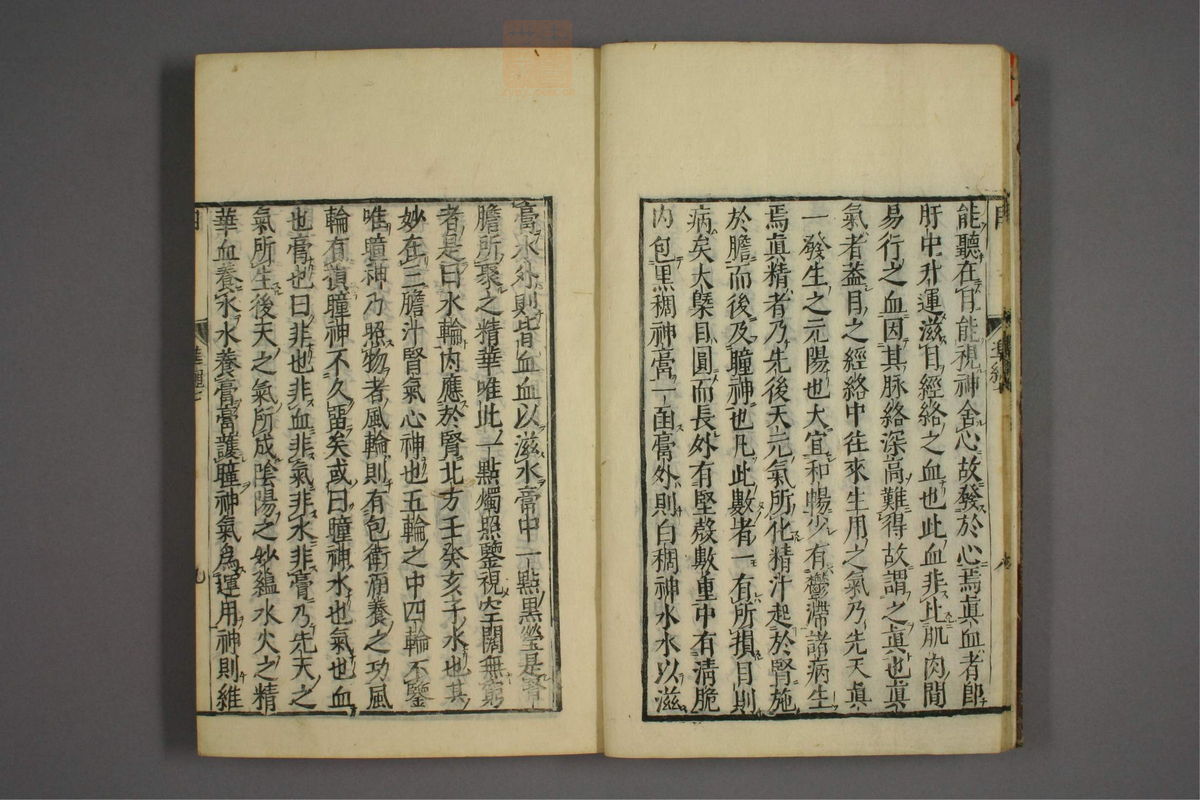 能聽在耳能視神舍心故發於心焉眞血者即
肝中升運滋目經絡之血也此血非比肌肉間
易行之血因其脉絡深高難得故謂之眞也眞
氣者葢目之經絡中往來生用之氣乃先天眞
一發生之元陽也大宜和暢少有鬱滯諸病生
焉眞精者乃先後天元氣所化精汁起於腎施
於膽而後及瞳神也凡此數者一有所損目則
病矣大槩目圓而長外有堅殼數重中有淸脆
内包黑稠神膏一函膏外則白稠神水水以滋
膏水外則皆血血以滋水膏中一點黑瑩是腎
膽所聚之精華唯此一點燭照鑒視空闊無窮
者是曰水輪内應於腎北方壬癸亥子水也其
妙在三膽汁腎氣心神也五輪之中四輪不鑒
唯瞳神乃照物者風輪則有包衛涵養之功風
輪有損瞳神不久留矣或曰瞳神水也氣也血
也膏也曰非也非血非氣非水非膏乃先天之
氣所生後天之氣所成陰陽之妙蘊水火之精
華血養水水養膏膏護瞳神氣爲運用神則維